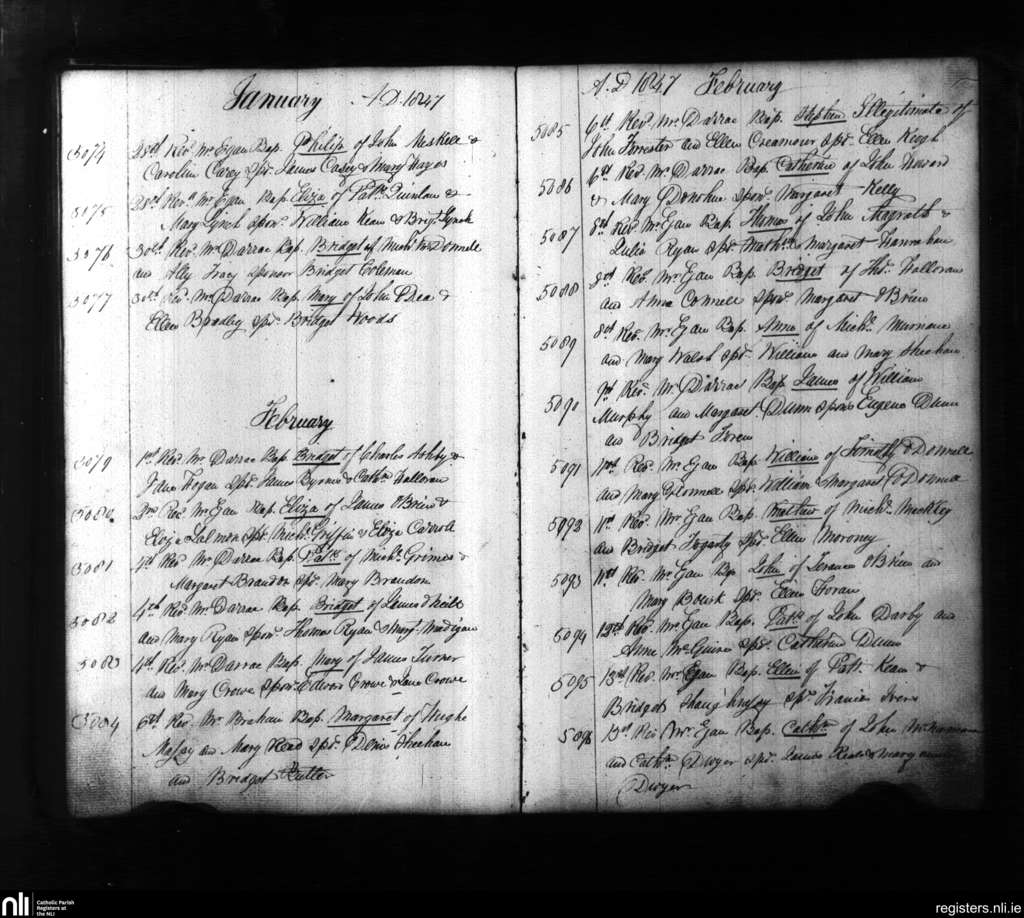 January A.D. 1847
5074 28th Revd. Mr. Egan Bap. Philip of John Meskell &
Caroline Carey Spr. James Casey & Mary Hayes
5075 28th Revd. Mr. Egan Bap. Eliza of Patk. Quinlan &
Mary Lynch Sponr. William Kean & Bridgt. Lynch
5076 30th Revd. Mr. Darrac Bap. Bridget of Michl. McDonnell
and Ally Tracy Sponsor Bridget Coleman
5077 30th Revd. Mr. Darrac Bap. Mary of John ODea &
Ellen Bradley Spr. Bridget Woods
February
5079 1st Revd. Mr. Darrac Bap. Bridget of Charles Ashby &
Jane Hogan Spr. James Byrnes & Cathn. Halloran
5080 2nd Revd. Mr. Egan Bap. Eliza of James OBrien &
Eliza Salmon Spr. Michl. Griffin & Eliza Carroll
5081 4th Revd. Mr. Darrac Bap. Patk. of Michl. Grimes &
Margaret Brandon Spr. Mary Brandon
5082 4th Revd. Mr. Darrac Bap. Bridget of James ONeill
and Mary Ryan Sponr. Thomas Ryan & Margt. Madigan
5083 4th Revd. Mr. Darrac Bap. Mary of James Turner
and Mary Crowe Sponr. Edward Crowe & Jane Crowe
5084 6th Revd. Mr. Bap. Margaret of Hugh
Massy and Mary Read Spr. Denis Sheehan
and Bridget Butler
A.D 1847 February
5085 6th Revd. Mr. Darrac Bap. Stephen Illegitimate of
John Forrester and Ellen Creamour Spr. Ellen Keogh
5086 6th Revd. Mr. Darrac Bap. Catherine of John Howard
& Mary ODonohue Sponr. Margaret Kelly
5087 8th Revd. Mr. Egan Bap. Thomas of John Magrath &
Julia Ryan Spr. Matthw. & Margaret Hanrahan
5088 8th Revd. Mr. Egan Bap. Bridget of Thos. Halloran
and Anne Connell Sponr. Margaret OBrien
5089 8th Revd. Mr. Egan Bap. Anne of Michl. Murnane
and Mary Walsh Spr. William and Mary Sheehan
5090 9th Revd. Mr. Darrac Bap. James of William
Murphy and Margaret Dunn Sponrs Eugene Dunn
and Bridget
5091 11th Revd. Mr. Egan Bap. William of Timothy ODonnell
and Mary ODonnell Spr. William & Margaret ODonnell
5092 11th Revd. Mr. Egan Bap. Matthew of Michl. Meckley
and Bridget Fogarty Spr. Ellen Moroney
5093 11th Revd. Mr. Egan Bap. John of Terance OBrien and
Mary Spr. Ellen Foran
5094 12th Revd. Mr. Egan Bap. Patk. of John Darby and
Anne McGuire Spr. Catherine Dunn
5095 13th Revd. Mr. Egan Bap. Ellen of Patk. Kean &
Bridget Shaughnessy Spr. Francis
5896 13th Revd. Mr. Egan Bap. Cathn. of John McNamara
and Cathn. Dwyer Spr. James and Mary
Dwyer
nli
Catholic Parish
Registers at
the NLI
registers.nli.ie